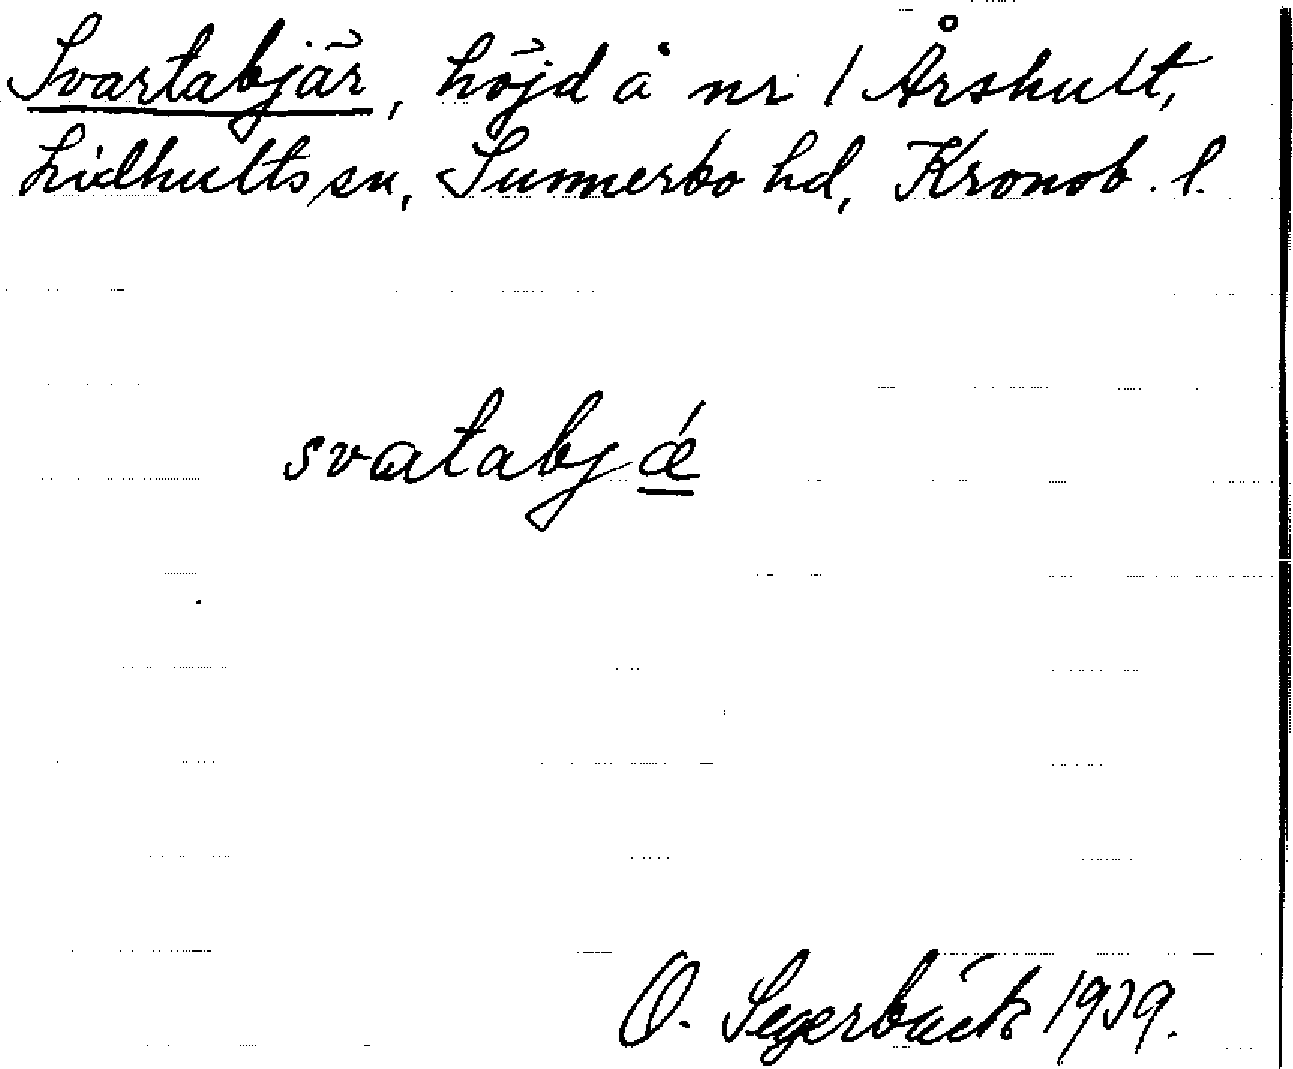 Svartabjär, höjd å nr 1 Årshult,
Lidhults sn, Sunnerbo hd, Kronob. l.
svatabjǽ
O. Segerbäck 1939.